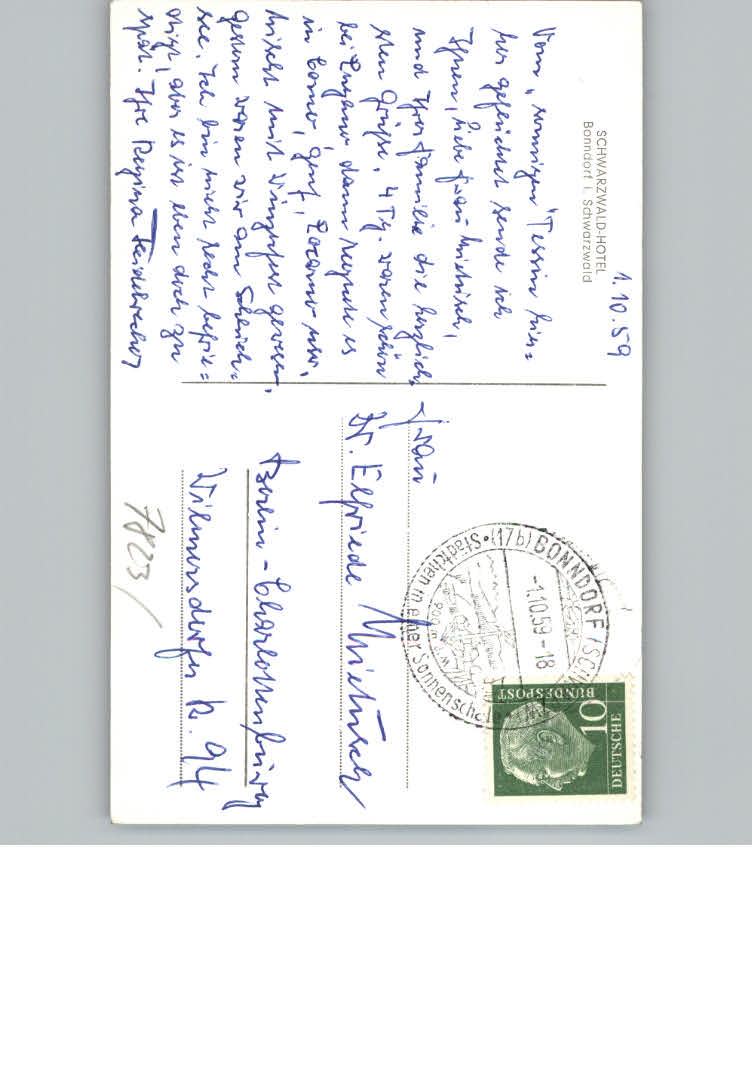 SCHWARZWALD-HOTEL
Bonndorf i. Schwarzwald
1.10.59
Vom „sonnigen“ Tessin hier=
her geflüchtet sende ich
Ihnen, liebe Frau
und Ihrer Familie die herzlich=
sten Grüße. 4 Tg. waren schön
bei Lugano dann regnete es
in Como, Genf, Locarno usw.
nichts mit gewesen.
Gestern waren wir am Schluch=
see. Ich bin nicht recht befrie=
digt, aber es ist eben doch zu
spät. Ihre Regina
Frau
Dr. Elfriede
Berlin-Charlottenburg
Wilmersdorfer Str. 94
7823
(17b) BONNDORF (SCHW
-1.10.59-18
Städtchen in einer Sonnenschale
900 m
DEUTSCHE
BUNDESPOST
10